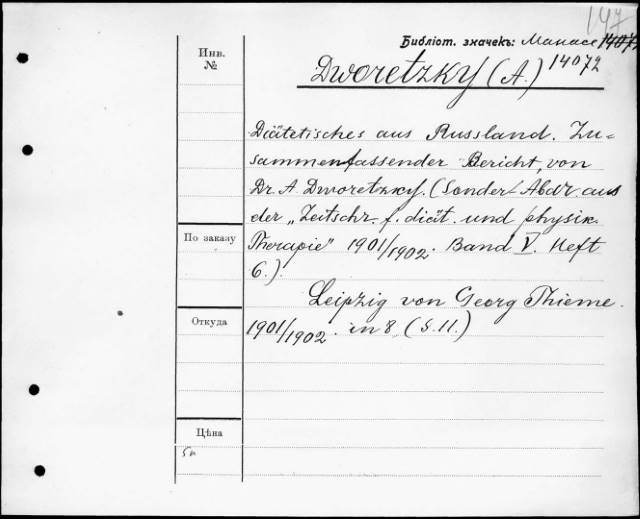 147
Библіот. значекъ: Манасе 14072
14072
Инв.
№
Dworetzky (A.)
Diätetisches aus Russland. Zu-
sammenfassender Bericht, von
Dr. A. Dworetzky. (Sonder-Abdr. aus
der „Zeitschr. f. diät. und physik.
По заказу
Therapie" 1901/1902. Band V. Heft
6.).
Leipzig von Georg Thieme.
Откуда
1901/1902. in 8 (S. 11.)
Цѣна